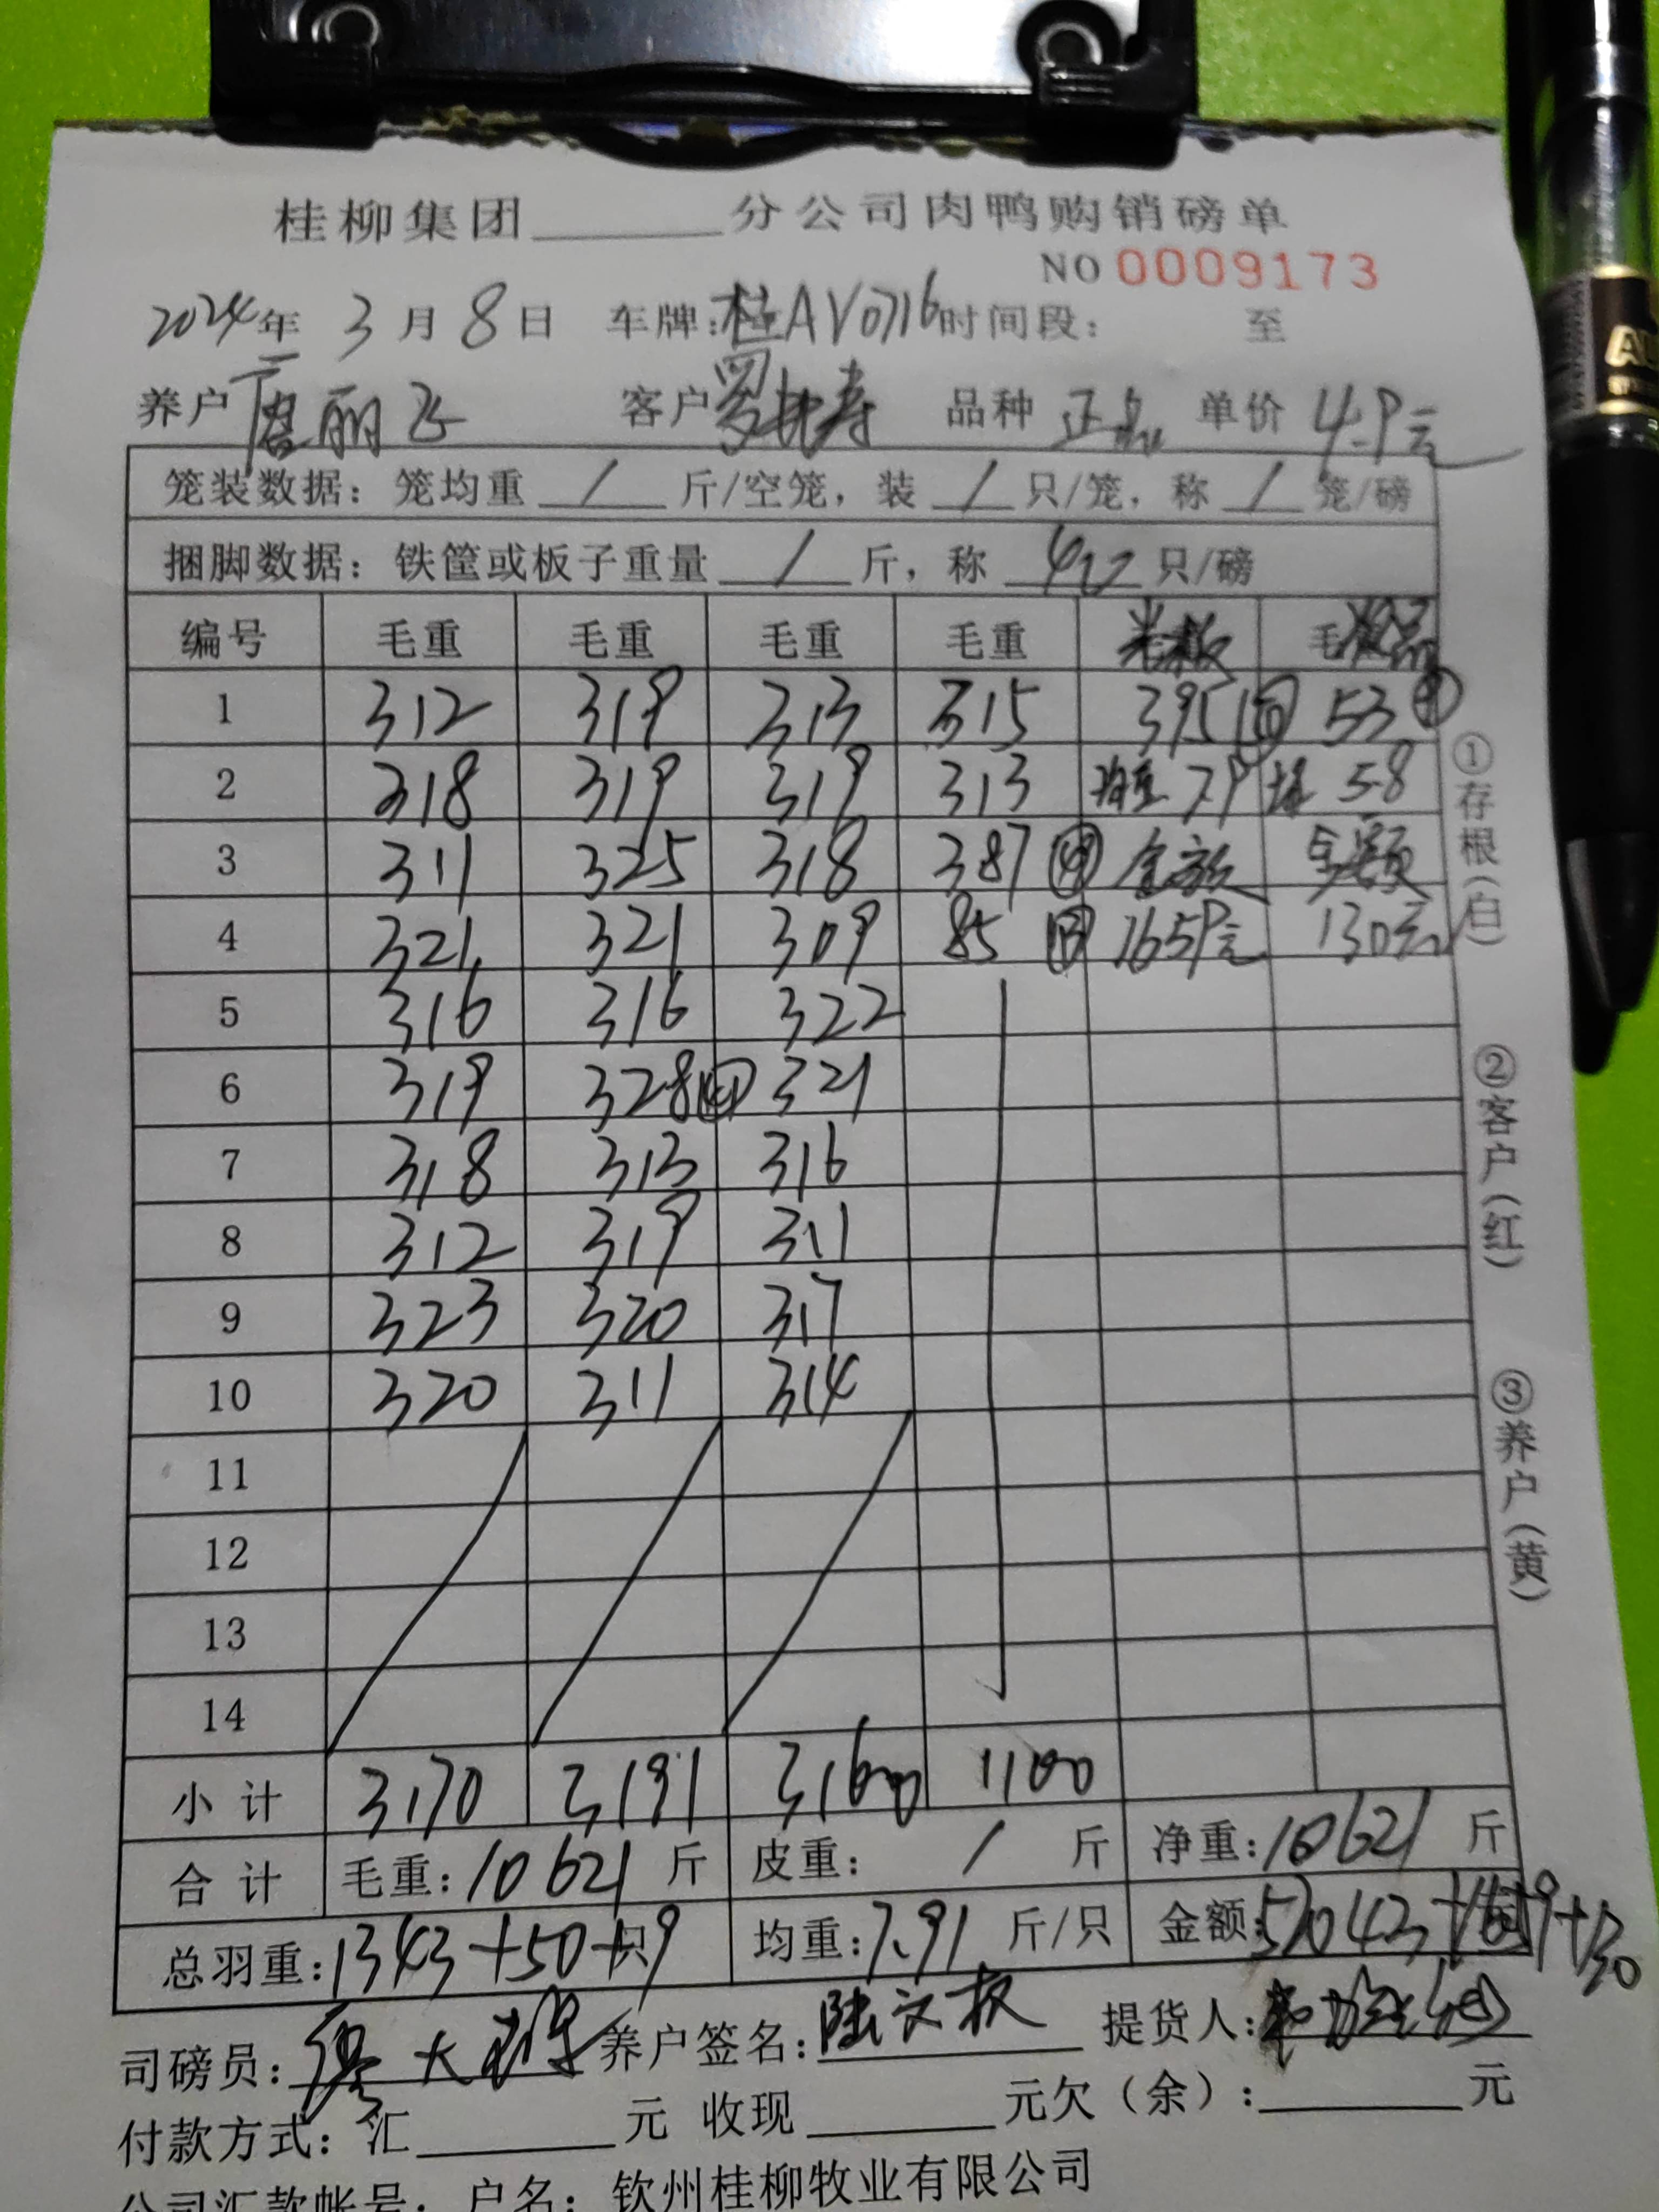 桂柳集团 分公司肉鸭购销磅单
NO 0009173
2024年 3月8日 车牌:桂AV0716 时间段: 至
养户 唐丽飞 客户 罗 寿 品种 正品 单价 4.9元
笼装数据: 笼均重 / 斤/空笼, 装 / 只/笼, 称 / 笼/磅
捆脚数据: 铁筐或板子重量 / 斤, 称 40 只/磅
编号 毛重 毛重 毛重 毛重 毛
1 312 319 313 315 395 50 53 9
2 318 319 319 313 均重 7.9 5.8
3 311 325 318 387 49 金额 金额
4 321 321 309 85 1659元 130元
5 316 316 322
6 319 328 41 321
7 318 313 316
8 312 319 311
9 323 320 317
10 320 311 314
11
12
13
14
小计 3170 3191 3160 1100
合计 毛重: 10621 斤 皮重: / 斤 净重: 10621 斤
总羽重: 1343+50+9 只 均重: 7.91 斤/只 金额: 52043+1659+130
司磅员: 养户签名: 陆文权 提货人:
付款方式: 汇 元 收现 元欠(余): 元
公司汇款帐号: 户名: 钦州桂柳牧业有限公司
①存根(白)
②客户(红)
③养户(黄)